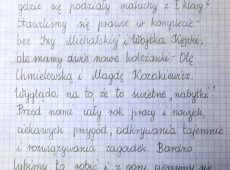 gdzie się podziały maluchy z I klasy?
Stawiliśmy się prawie w komplecie-
bez Izy Michalskiej i Wojtka Kępko,
ale mamy dwie nowe koleżanki - Olę
Chmielowską i Magdę Kozakiewicz.
Wygląda na to, że to świetne „nabytki".
Przed nami cały rok pracy i nowych,
ciekawych przygód, odkrywania tajemnic
i rozwiązywania zagadek. Bardzo
lubimy to robić i z góry cieszymy się